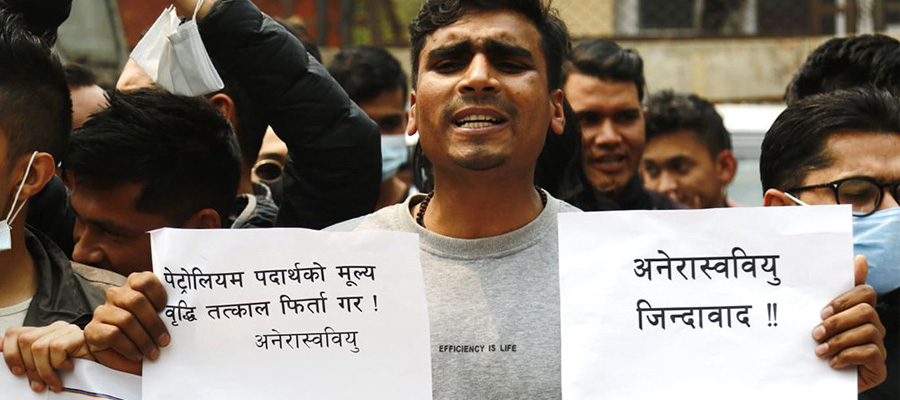 पेट्रोलियम पदार्थको मूल्य
वृद्धि तत्काल फिर्ता गर !
अनेरास्ववियु
EFFICIENCY IS LIFE
अनेरास्ववियु
जिन्दावाद !!